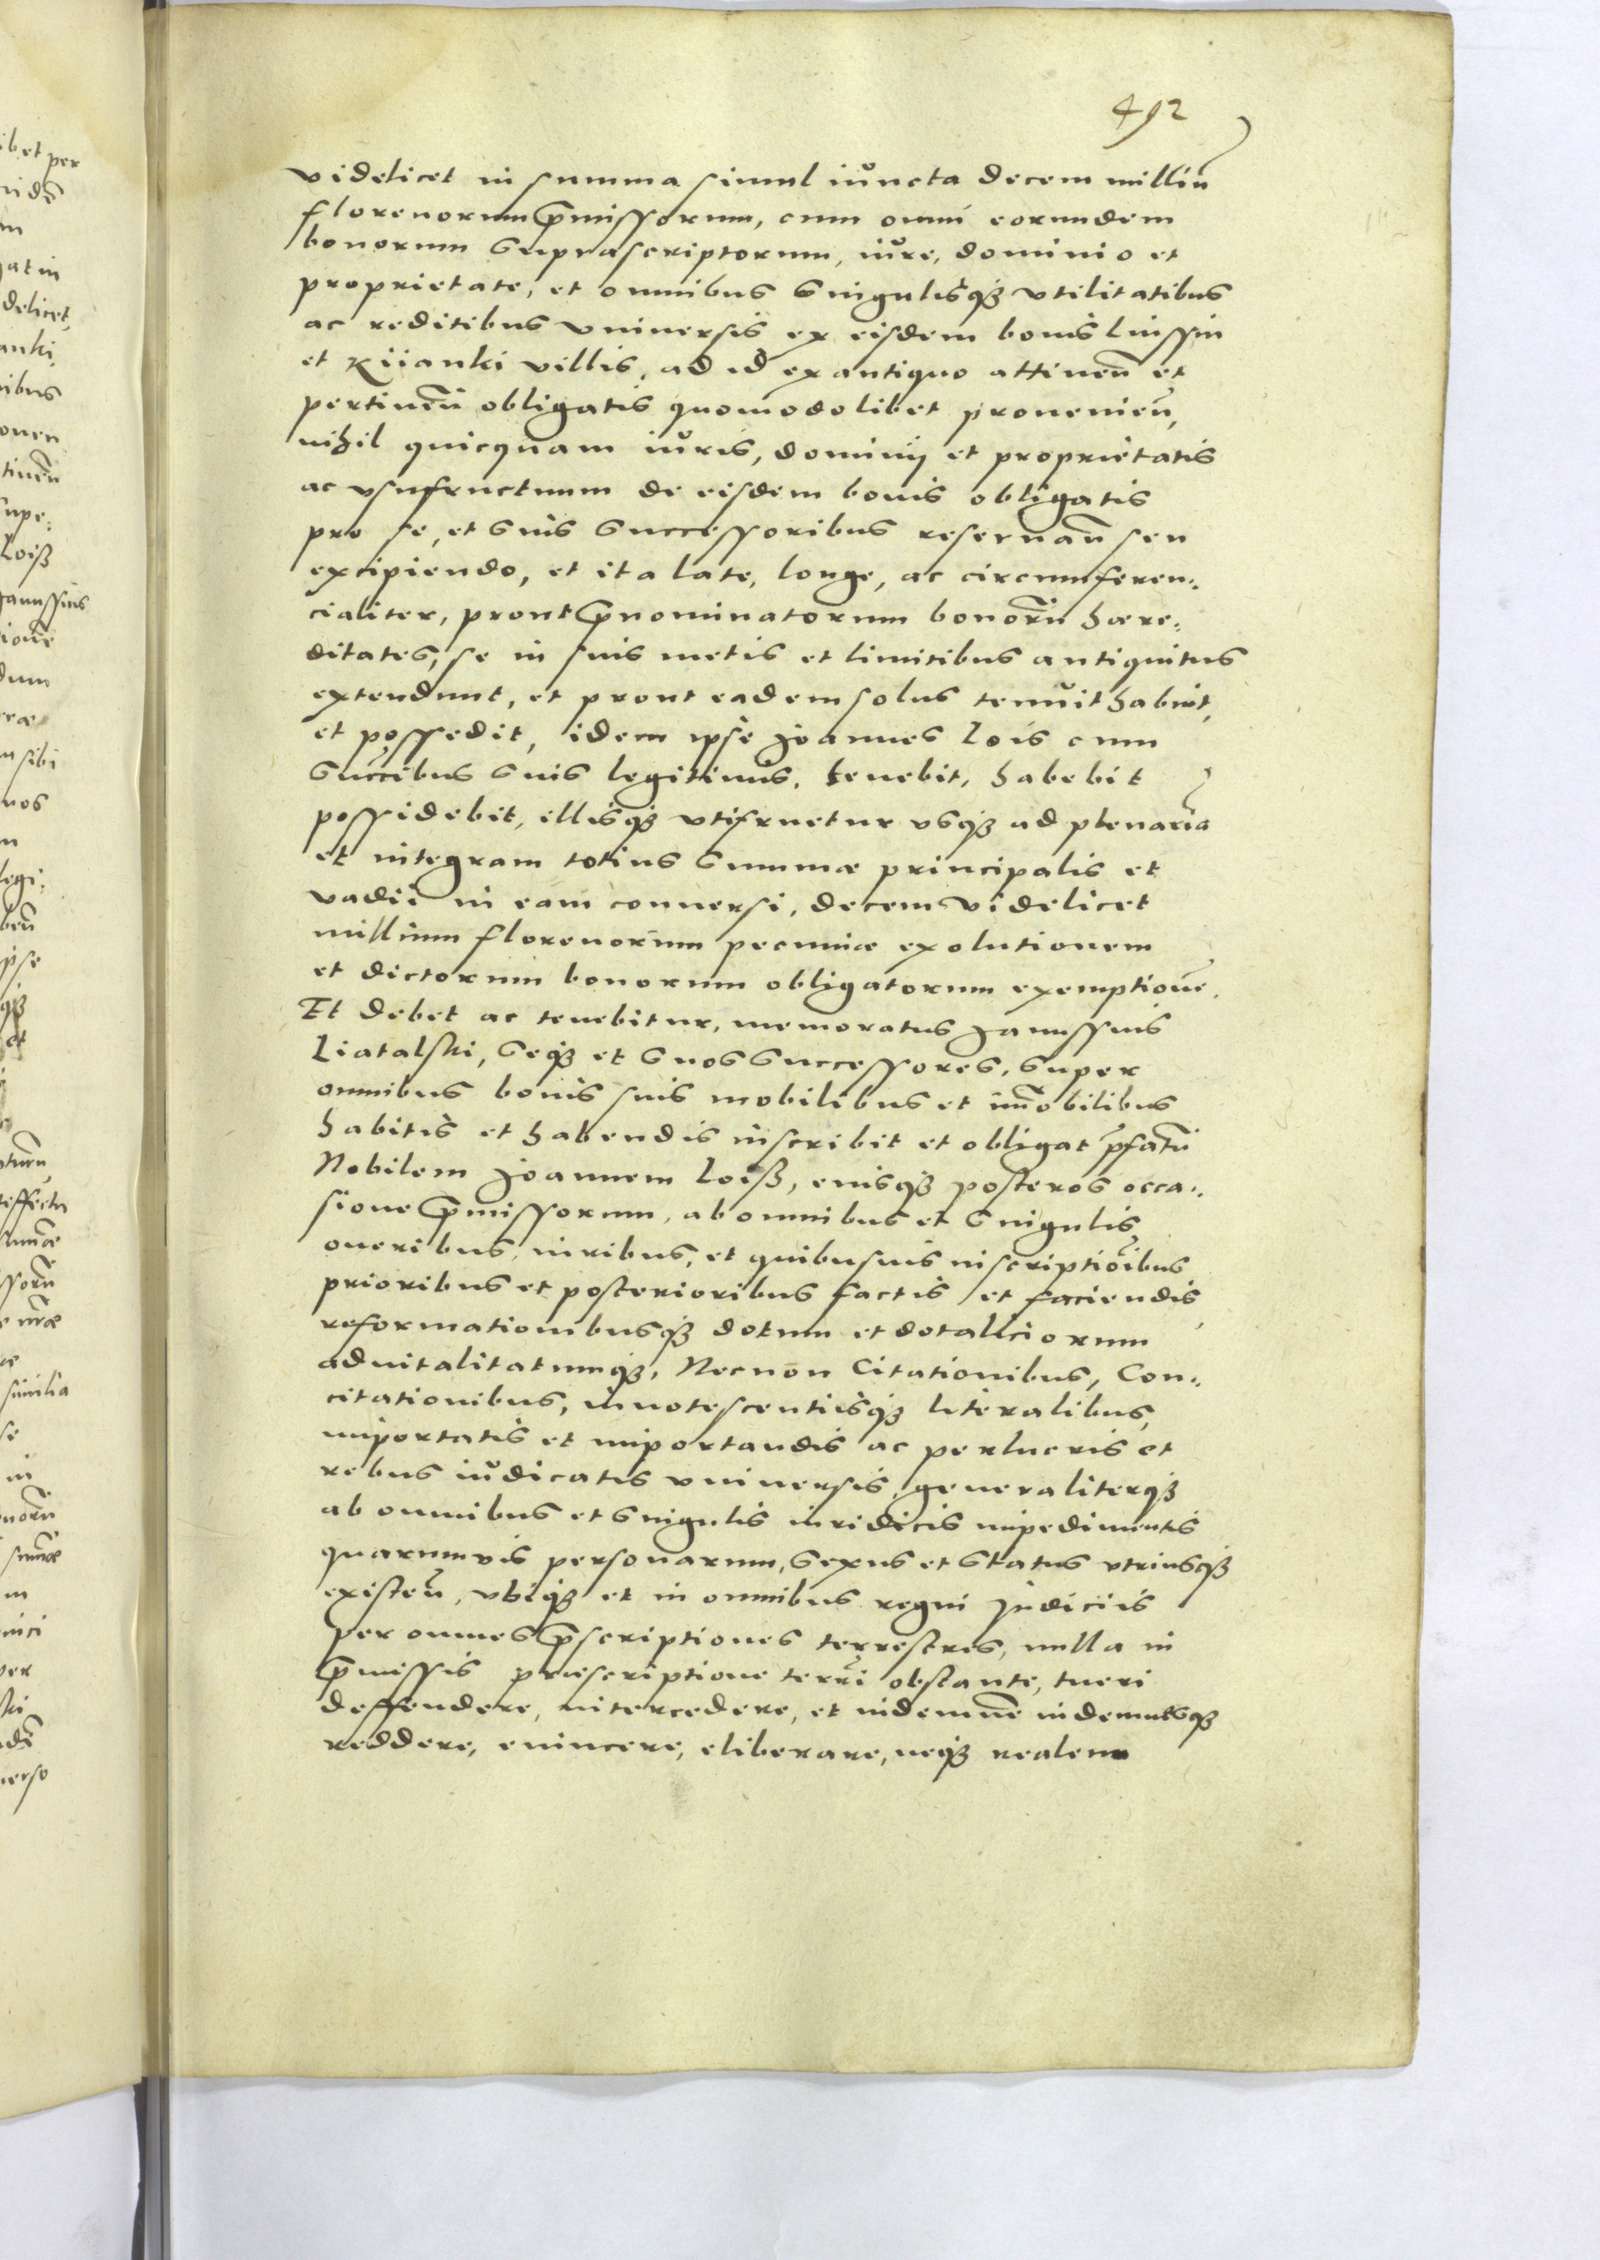 492
videlicet in summa simul iuncta decem milliū
florenorum p̄missorum, cum omni eorundem
bonorum supprascriptorum, iure, dominio et
proprietate, et omnibus singulisq₃ vtilitatibus
ac reditibus vniversis ex eisdem bonis Liussin
et Kijanki villis, ad id ex antiquo attinen̄ et
pertinen̄ obligatis quomodolibet provenien̄,
nihil quicquam iuris, dominij et proprietatis
ac vsufructuum de eisdem bonis obligatis
pro se, et suis successoribus reservan̄ seu
excipiendo, et ita late, longe, ac circumferen:
cialiter, prout p̄nominatorum bonorū hære:
ditates, se in suis metis et limitibus antiquitus
extendunt, et prout eadem solus tenuit habuit,
et possedit, idem ipse Joannes Lois cum
succībus suis legitimis, tenebit, habebit
possidebit, illisq₃ vtifruetur vsq₃ ad plenariā
et integram totius summæ principalis et
vadii in eam conversi, decem videlicet
millium florenorum pecuniæ exolutionem
et dictorum bonorum obligatorum exemptionē.
Et debet ac tenebitur, memoratus Janussius
Liatalski, seq₃ et suos successores, super
omnibus bonis suis mobilibus et im̄obilibus
habitis et habendis inscribit et obligat p̄fatū
Nobilem Joannem Loiß, eiusq₃ posteros occa:
sione p̄missorum, ab omnibus et singulis
oneribus, iuribus, et quibusvis inscriptioībus
prioribus et posterioribus factis et faciendis,
reformationibusq₃ dotum et dotaliciorum
advitalitatumq₃, Necnon Citationibus, Con:
citationibus, innotescentiisq₃ literalibus,
importatis et importandis ac perlucris et
rebus iudicatis vniversis, generaliterq₃
ab omnibus et singulis iuridicis impedimentis
quarumvis personarum, sexus et status vtriusq₃
existen̄, vbiq₃ et in omnibus regni Judiciis
per omnes p̄scriptiones terrestres, nulla in
p̄missis præscriptione terrī obstante, tueri
deffendere, intercedere, et indemnē indemnesq₃
reddere, evincere, eliberare, neq₃ realem